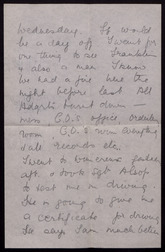 Wednesday. It would
be a day off. I went for
one thing to see Franklin
& also a man
We had a fire here the
night before last. All
Hdqrts burnt down —
mess C.O's office, orderly
room C.O's own everything
& all records etc.
I went to
aft. & took Sgt Alsop
to test me in driving.
He is going to give me
a certificate for driving
He says I am much better